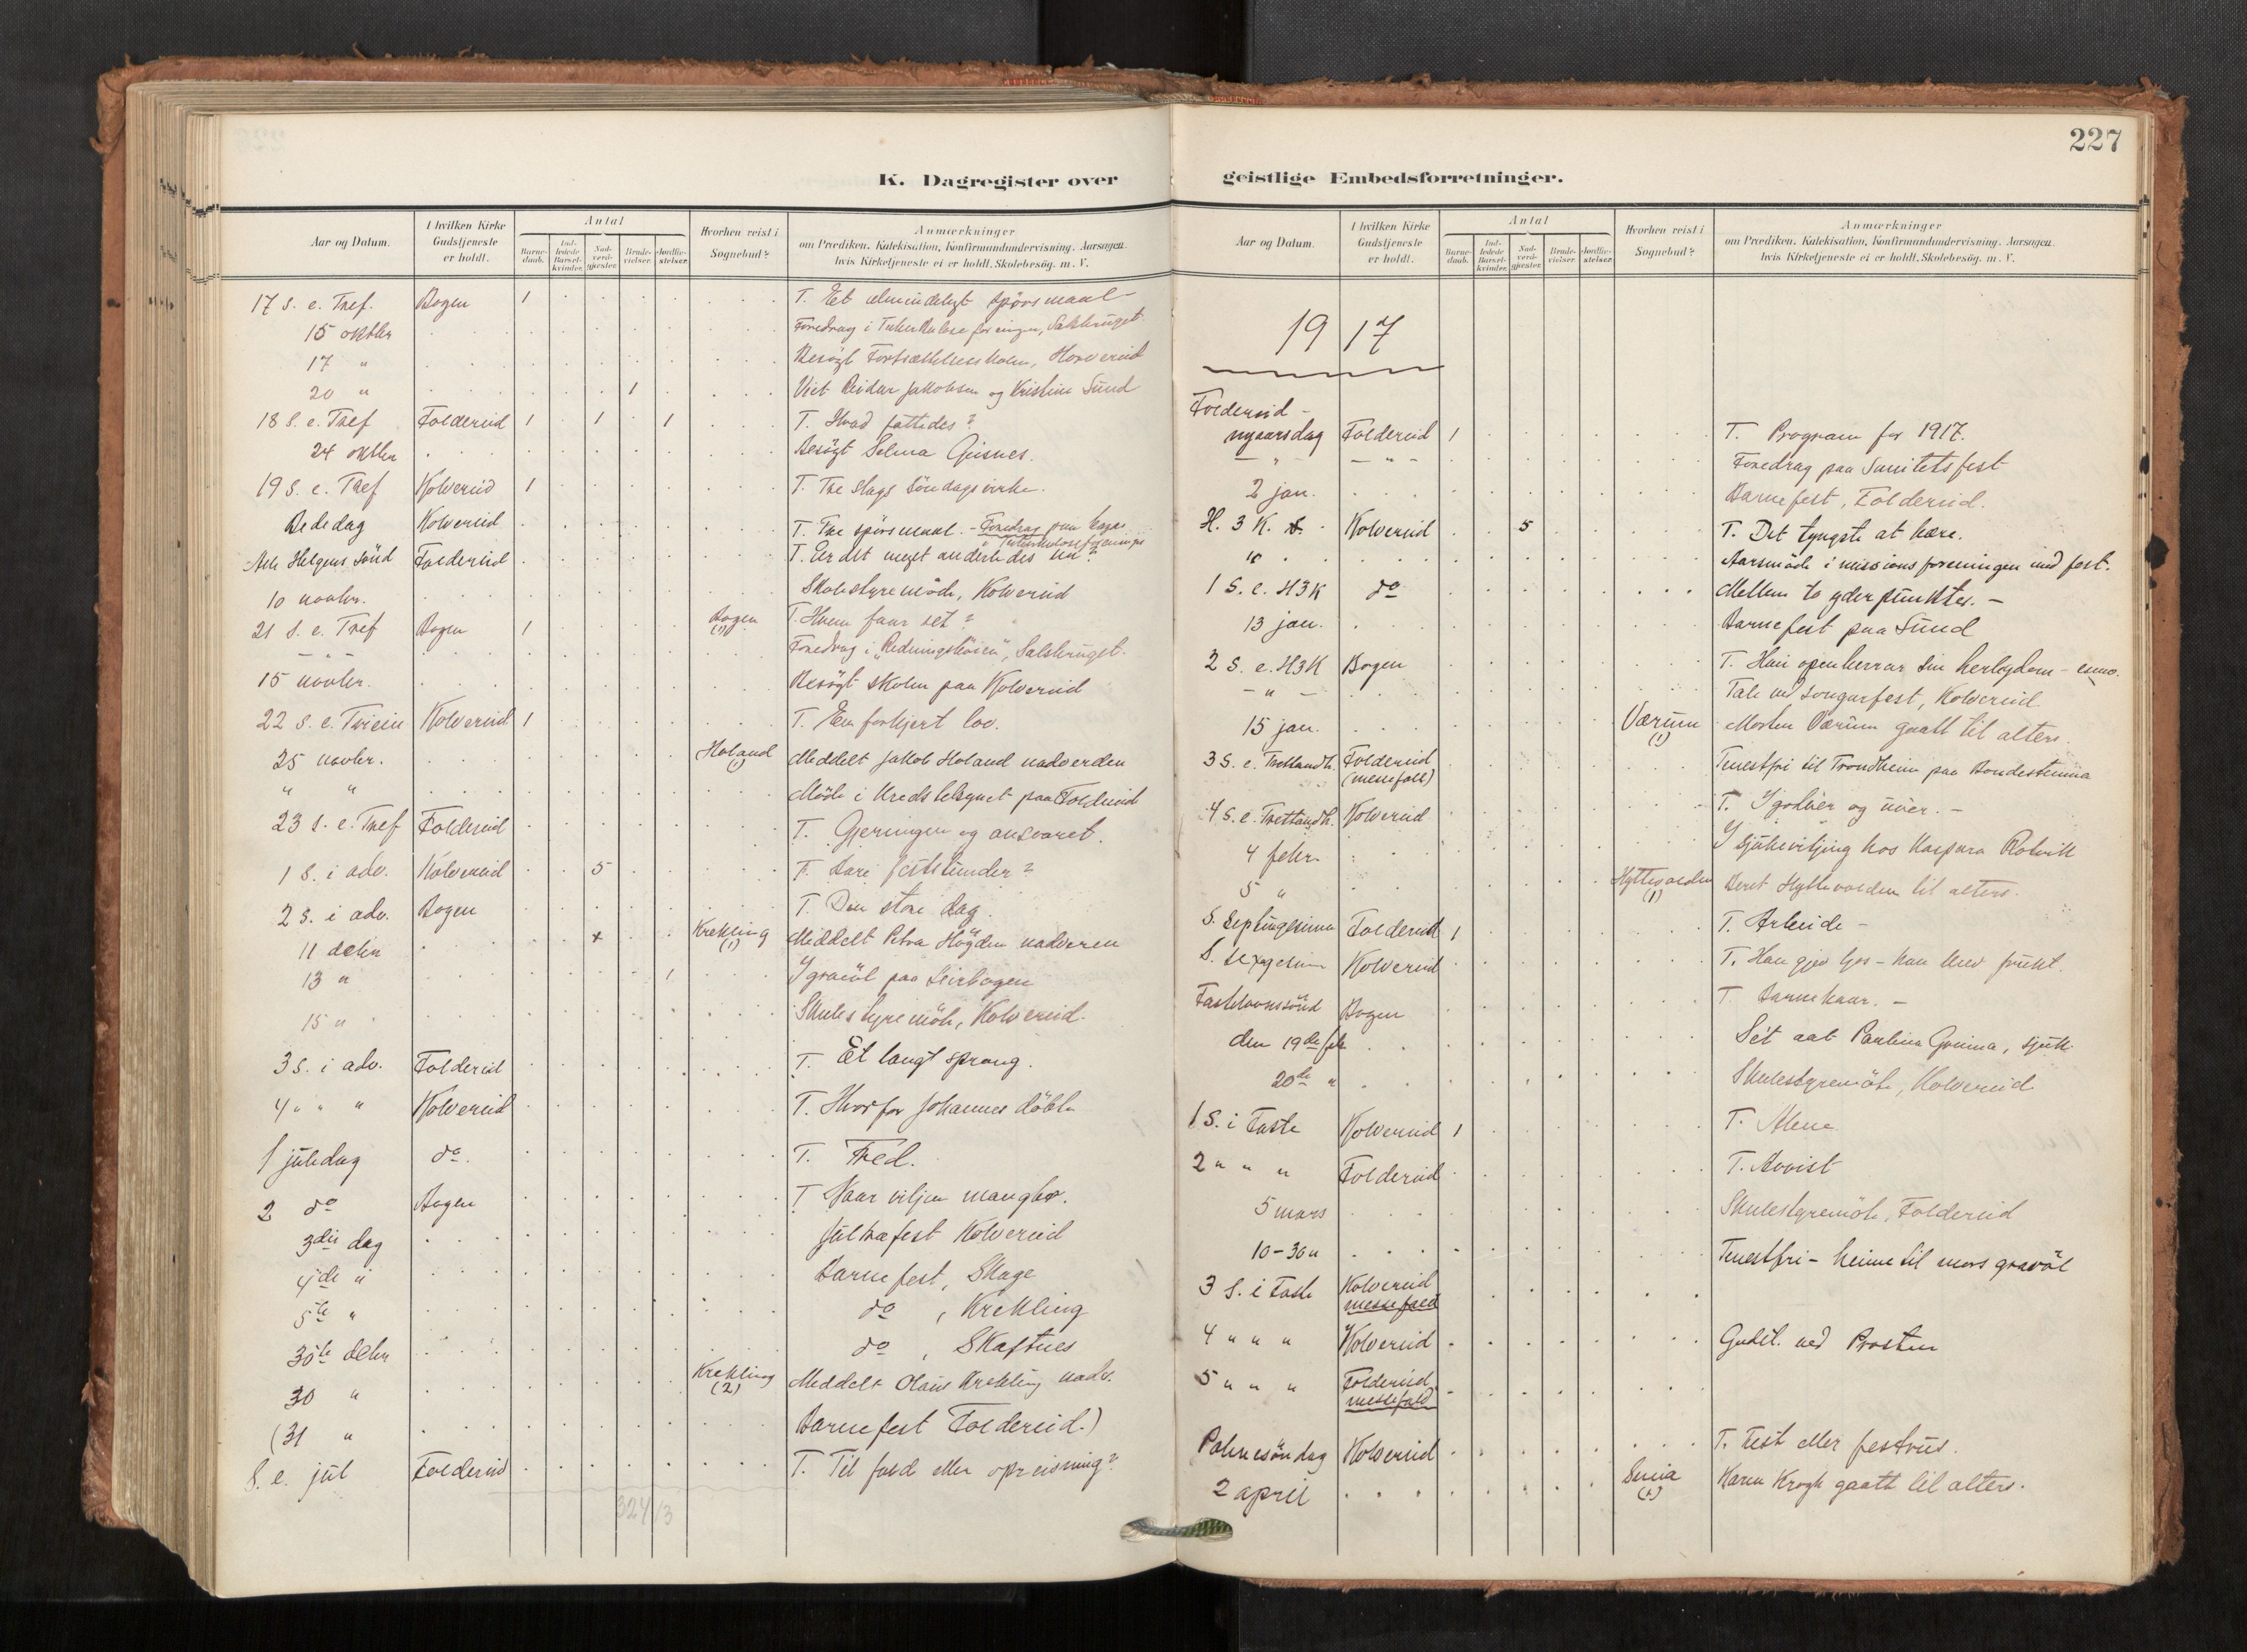 227
K. Dagregister over geistlige Embedsforretninger.
Aar og Datum.
I hvilken Kirke Gudstjeneste er holdt.
Antal
Barne-daab.
Ind-ledede Barsel-kvinder.
Nad-verd-gjester.
Brude-vielser.
Jordfæ-stelser.
Hvorhen reist i Sognebud?
Anmærkninger
om Prædiken. Katekisation, Konfirmandundervisning. Aarsagen
hvis Kirketjeneste ei er holdt. Skolebesøg. m. V.
17 S. e. Tref. Bogen 1 T. Et almindeligt spörsmaal
15 oktbr Foredrag i Tuberkuloseforeningen, Salsbruget.
17 " Besögt Fortsættelsesskolen,
20 " 1 Viet Reidar Jakobsen og Kristine Sund
18 S. e. Tref Foldereid 1 1 1 T. Hvad fattedes?
24 oktbr Besögt Selma Gisnes.
19 S. e. Tref Kolvereid 1 T. Tre slags söndagsvirke.
Bededag Kolvereid T. Tre spörsmaal. - Foredrag paa
i Tuberkuloseforeninga
Alle Helgens sönd Foldereid T. Er det meget anderledes nu?
10 novbr. Skolestyremöde, Kolvereid
21 S. e. Tref Bogen 1 Bogen (1) T. Hvem faar set?
- " - Foredrag i "Redningsköien", Salsbruget.
15 novbr. Besögt skolen paa Kolvereid
22 S. e. Trein Kolvereid 1 T. En forkjert lov.
25 novbr. Holand (1) Meddelt Jakob Holand nadverden
" " Möde i Kredstelsynet paa Foldereid
23 S. e. Tref Foldereid T. Gjerningen og ansvaret.
1 S. i adv. Kolvereid 5 T. Bare feststunder?
2 S. i adv. Bogen T. Den store dag.
11 debr x Krekling (1) Meddelt Petra Högden nadveren
13 " 1 I gravöl paa Leirbogen
15 " Skulestyremöte, Kolvereid.
3 S. i adv. Foldereid T. Et langt sprang.
4 " " " Kolvereid T. Hvorfor Johannes döbte
1 juledag do. T. Fred.
2 do Bogen T Naar viljen mangler.
3die dag Jultrafest Kolvereid
4de " Barnefest, Skage
5te " do, Krekling
30te debr do, Skaftnes
30 " Krekling (2) Meddelt Olaus Krekling nadv.
(31 " Barnefest Foldereid.)
S. e. jul Foldereid T. Til fald eller opreisning?
324/3
Aar og Datum.
I hvilken Kirke Gudstjeneste er holdt.
Antal
Barne-daab.
Ind-ledede Barsel-kvinder.
Nad-verd-gjester.
Brude-vielser.
Jordfæ-stelser.
Hvorhen reist i Sognebud?
Anmærkninger
om Prædiken. Katekisation, Konfirmandundervisning. Aarsagen
hvis Kirketjeneste ei er holdt. Skolebesøg. m. V.
1917
Foldereid -
nyaarsdag Foldereid 1 T. Program for 1917.
- " - - " - Foredrag paa Sanitetsfest
2 jan. Barnefest, Foldereid.
H. 3 K. Kolvereid 5 T. Det tyngste at bære.
" Aarsmöde i missionsforeningen med fest.
1 S. e. H3K do Mellem to yderpunkter. -
13 jan. Barnefest paa Sund
2 S. e. H3K Bogen T. Han openberrar sin herlegdom - enno.
- " - Tale ved songarfest, Kolvereid.
15 jan. Værum (1) Morten Værum gaatt til alters.
3 S. e. Trettandh. Foldereid (messefall) Tenestfri til Trondheim paa Bondestemna
4 S. e. Trettandh. Kolvereid T. I godvêr og uvêr. -
4 febr. I sjukevitjing hos Kaspara Rotvik
5 " Hyttevolden (1) Beret Hyttevolden til alters.
S. Septuagesima Foldereid 1 T. Arbeide -
S. sexagesim Kolvereid T. Han gjev ljos - han krev frukt.
Fastelavnssönd Bogen T. Barnekaar. -
den 19de feb Sét aat Paulina Gnina, sjuk.
20de " Skulestyremöte, Kolvereid
1 S. i Faste Kolvereid 1 T. Alene
2 " " " Foldereid T. Avvist
5 mars Skulestyremöte, Foldereid
10-30 " Tenestfri - heime til mors gravöl
3 S. i Faste Kolvereid messefald
4 " " " Kolvereid Gudst. ved Prosten
5 " " " Foldereid messefald
Palmesöndag Kolvereid T. Fest eller festrus.
2 april (1) Karen Krogh gaatt til alters.